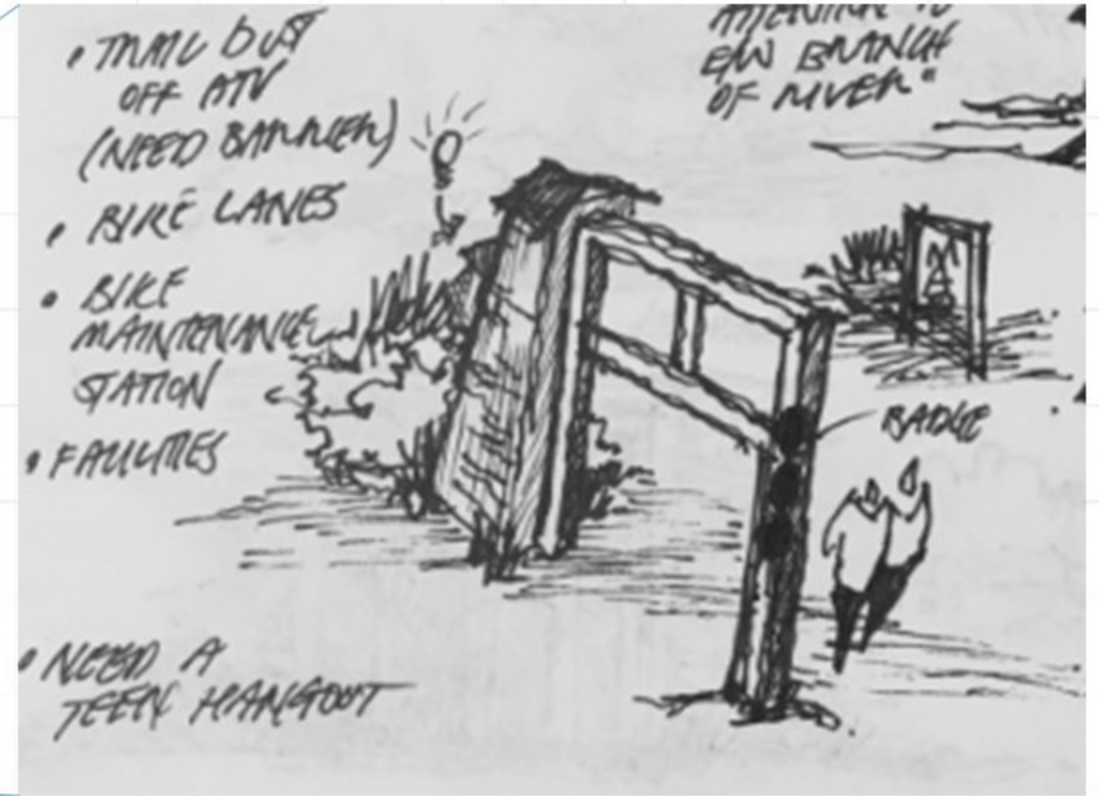 • TRAIL DUST
OFF ATV
(NEED BARRIER)
• BIKE LANES
• BIKE
MAINTENANCE
STATION
• FACILITIES
• NEED A
TEEN HANGOUT
ATTENTION TO
E/W BRANCH
OF RIVER"
BADGE